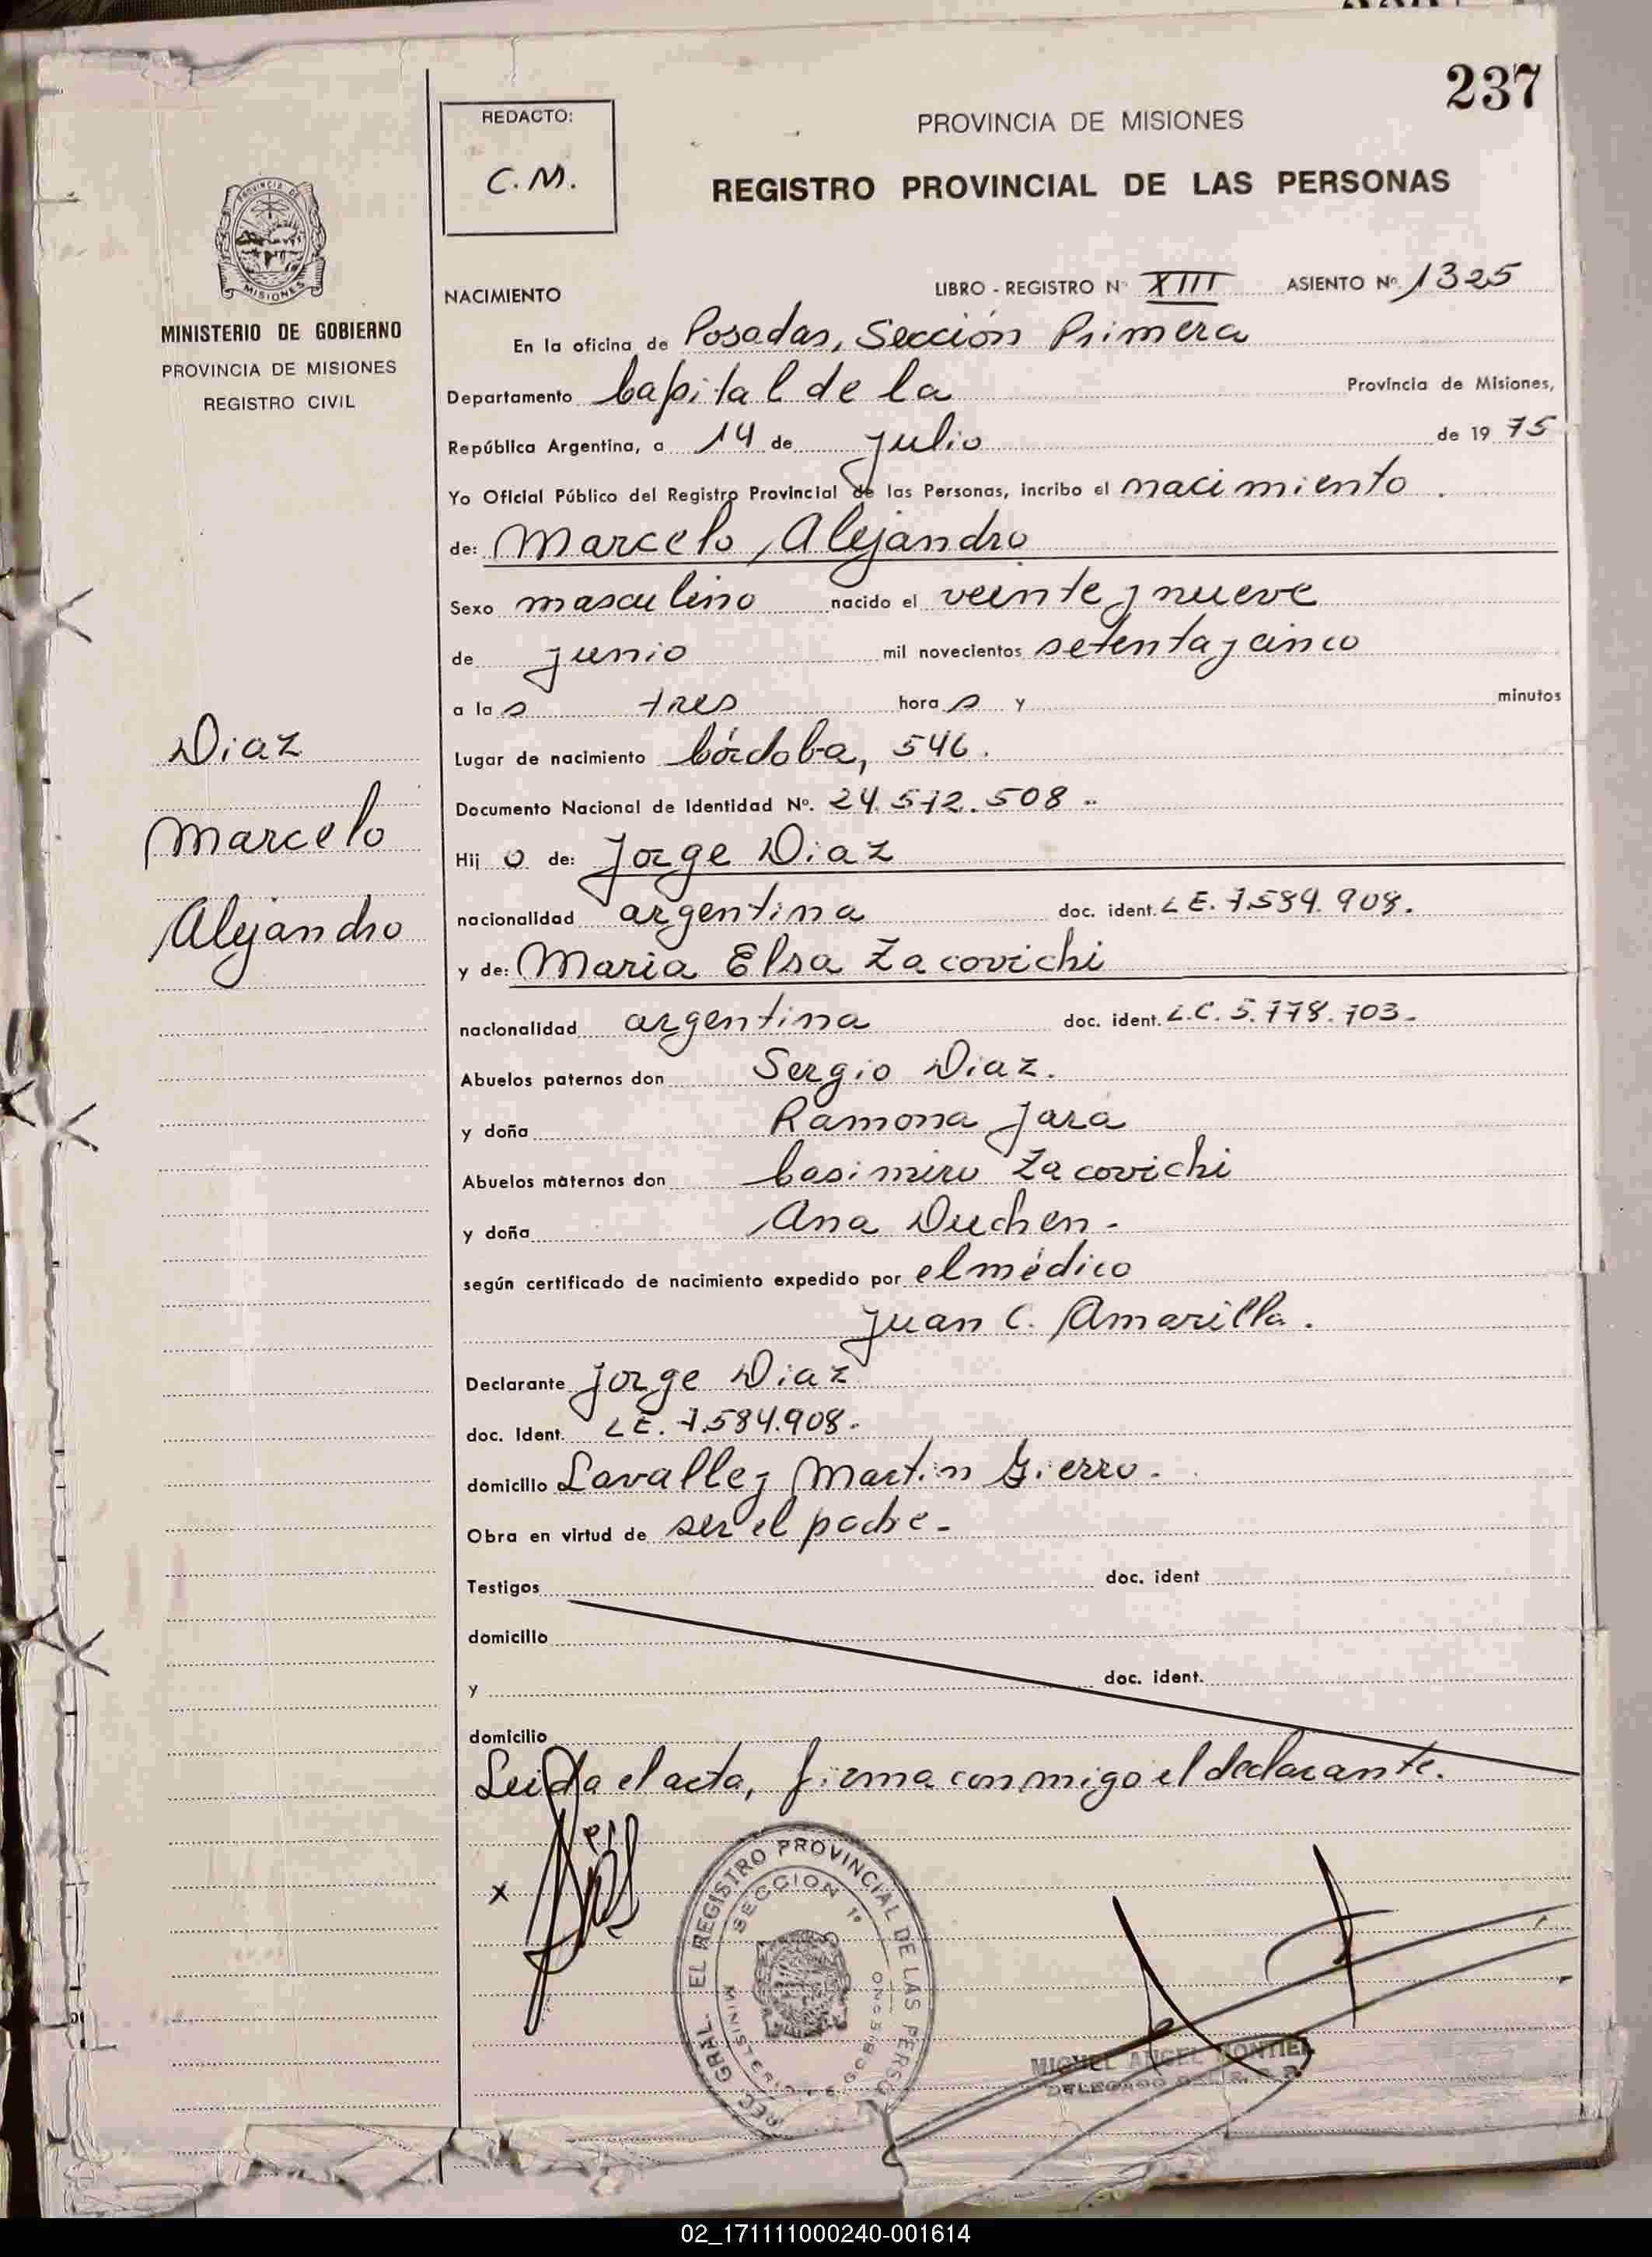 237
REDACTO:
C.M.
PROVINCIA DE MISIONES
REGISTRO PROVINCIAL DE LAS PERSONAS
PROVINCIA DE
MISIONES
MINISTERIO DE GOBIERNO
PROVINCIA DE MISIONES
REGISTRO CIVIL
NACIMIENTO
LIBRO - REGISTRO Nº XIII ASIENTO Nº 1325
En la oficina de Posadas, Sección Primera
Departamento Capital de la Provincia de Misiones,
República Argentina, a 14 de julio de 19 75
Yo Oficial Público del Registro Provincial de las Personas, incribo el nacimiento.
de: Marcelo Alejandro
Sexo masculino nacido el veinte y nueve
de junio mil novecientos setenta y cinco
a la s tres hora s y minutos
Lugar de nacimiento Córdoba, 546.
Documento Nacional de Identidad Nº. 24.572.508..
Hij o de: Jorge Diaz
nacionalidad argentina doc. ident. LE. 7.584.908.
y de: Maria Elsa Zacovichi
nacionalidad argentina doc. ident. L.C. 5.778.703-
Abuelos paternos don Sergio Diaz.
y doña Ramona Jara
Abuelos maternos don Casimiro Zacovichi
y doña Ana Duchen-
según certificado de nacimiento expedido por el médico
Juan C. Amarilla.
Declarante Jorge Diaz
doc. Ident. LE. 7.584.908-
domicilio Lavalle y Martin Gierro-
Obra en virtud de ser el padre-
Testigos doc. ident
domicilio
y doc. ident.
domicilio
Leida el acta, firma conmigo el declarante.
Diaz
Marcelo
Alejandro
x
REG. GRAL. EL REGISTRO PROVINCIAL DE LAS PERSO
SECCION 1º
MINISTERIO DE GOBIERNO
MIGUEL ANGEL MONTIEL
DELEGADO
02_171111000240-001614